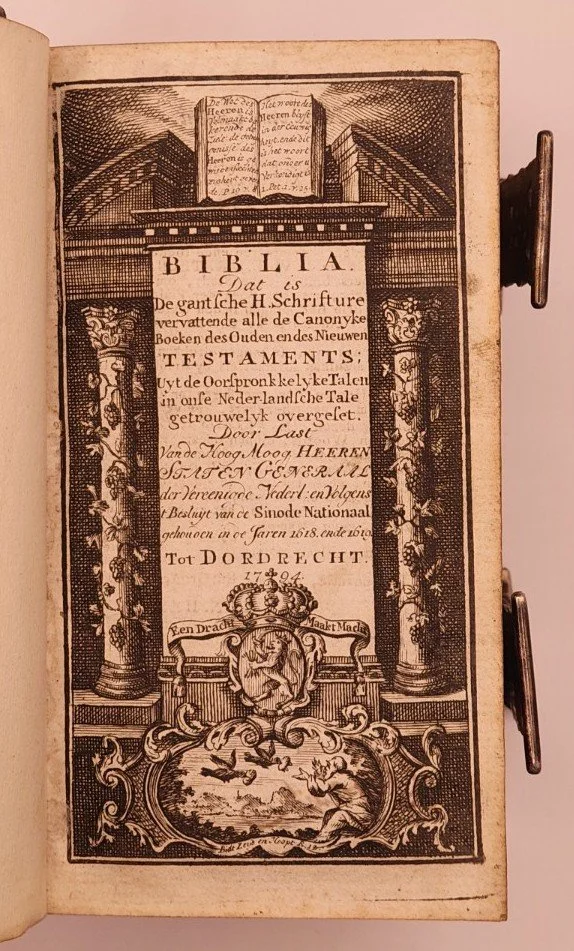 De Wet des
Heeren is
kerende de
Heeren is
Het woort des
Heeren blyft
ende dit
is het woort
dat onder u
Verkondigt is
1. Pet. 1. v. 25
BIBLIA.
Dat is
De gantsche H. Schrifture
vervattende alle de Canonyke
Boeken des Ouden en des Nieuwen
TESTAMENTS;
Uyt de Oorspronkkelyke Talen
in onse Neder-landsche Tale
getrouwelyk overgeset.
Door Last
Van de Hoog Moog HEEREN
STATEN GENERAAL
der Vereenigde Nederl: en Volgens
t Besluyt van de Sinode Nationaal
gehouden in de Jaren 1618. ende 1619.
Tot DORDRECHT.
1794.
Een Dracht Maakt Macht
en Hoopt